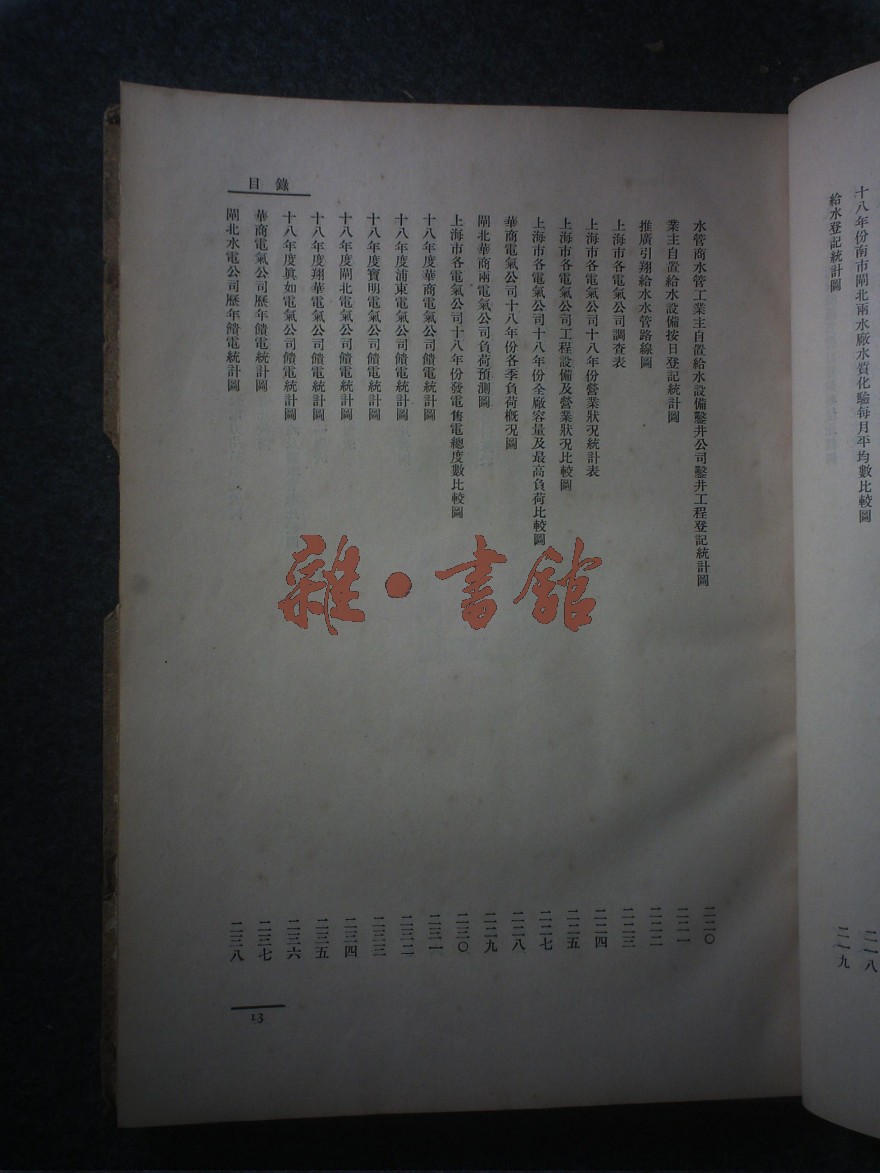 十八年份南市閘北兩水廠水質化驗每月平均數比較圖 二一八
給水登記統計圖 二一九
水管商水管工業主自置給水設備鑿井公司鑿井工程登記統計圖 二二〇
業主自置給水設備按日登記統計圖 二二一
推廣引翔給水水管路線圖 二二二
上海市各電氣公司調查表 二二三
上海市各電氣公司十八年份營業狀況統計表 二二四
上海市各電氣公司工程設備及營業狀況比較圖 二二五
上海市各電氣公司十八年份全廠容量及最高負荷比較圖 二二七
華商電氣公司十八年份各季負荷概況圖 二二八
閘北華商兩電氣公司負荷預測圖 二二九
上海市各電氣公司十八年份發電售電總度數比較圖 二三〇
十八年度華商電氣公司饋電統計圖 二三一
十八年度浦東電氣公司饋電統計圖 二三二
十八年度寶明電氣公司饋電統計圖 二三三
十八年度閘北電氣公司饋電統計圖 二三四
十八年度翔華電氣公司饋電統計圖 二三五
十八年度眞如電氣公司饋電統計圖 二三六
華商電氣公司歷年饋電統計圖 二三七
閘北水電公司歷年饋電統計圖 二三八
目錄
13
雜·書館